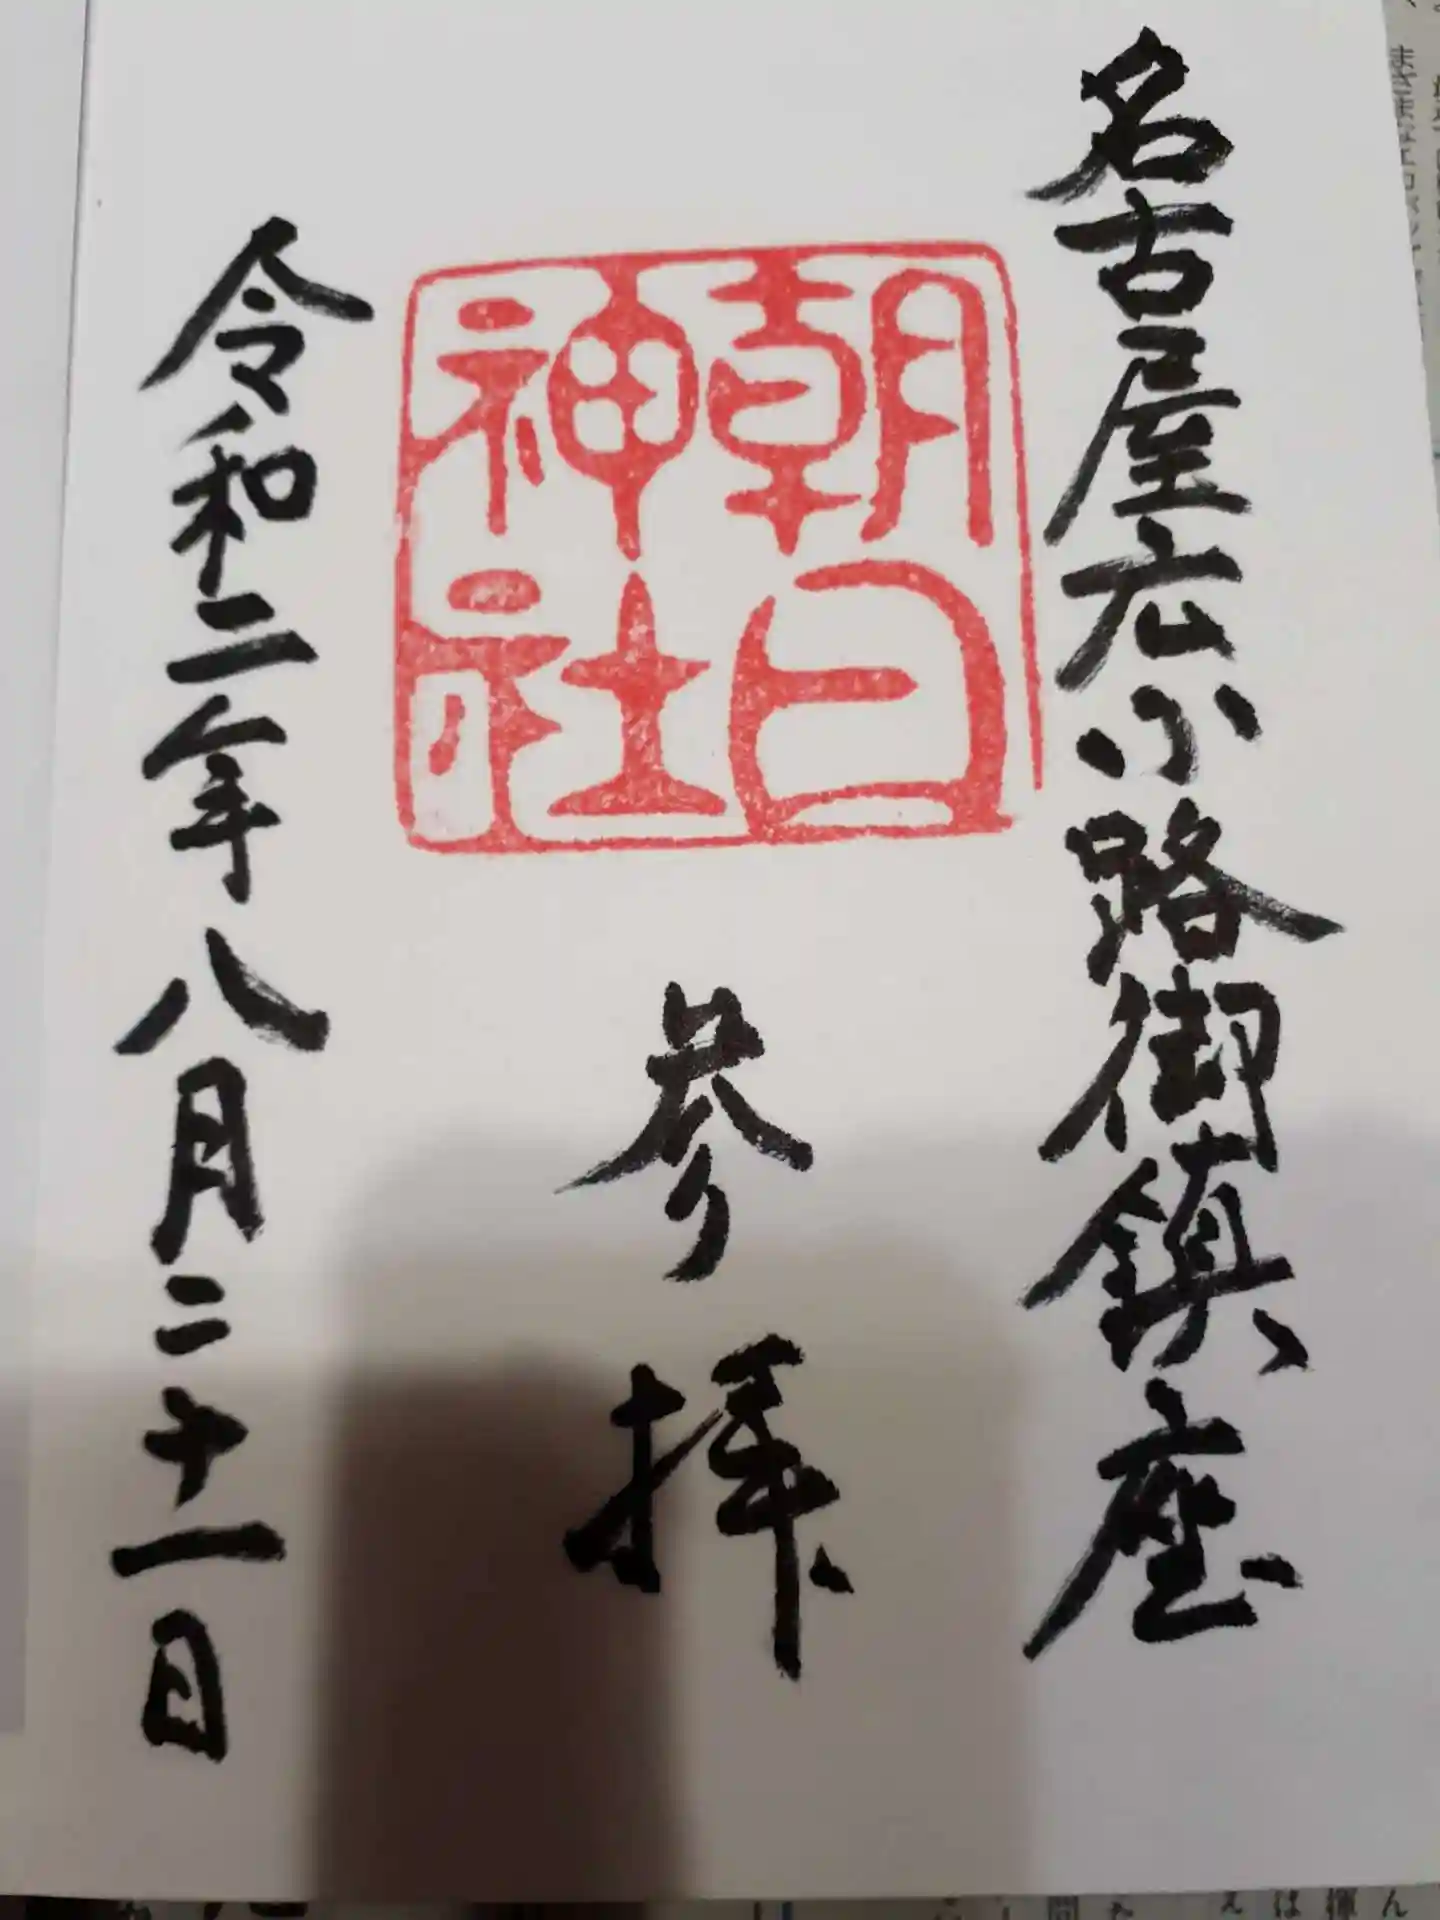 名古屋広小路街鎮座
朝日
神社
参拝
令和二年八月二十一日